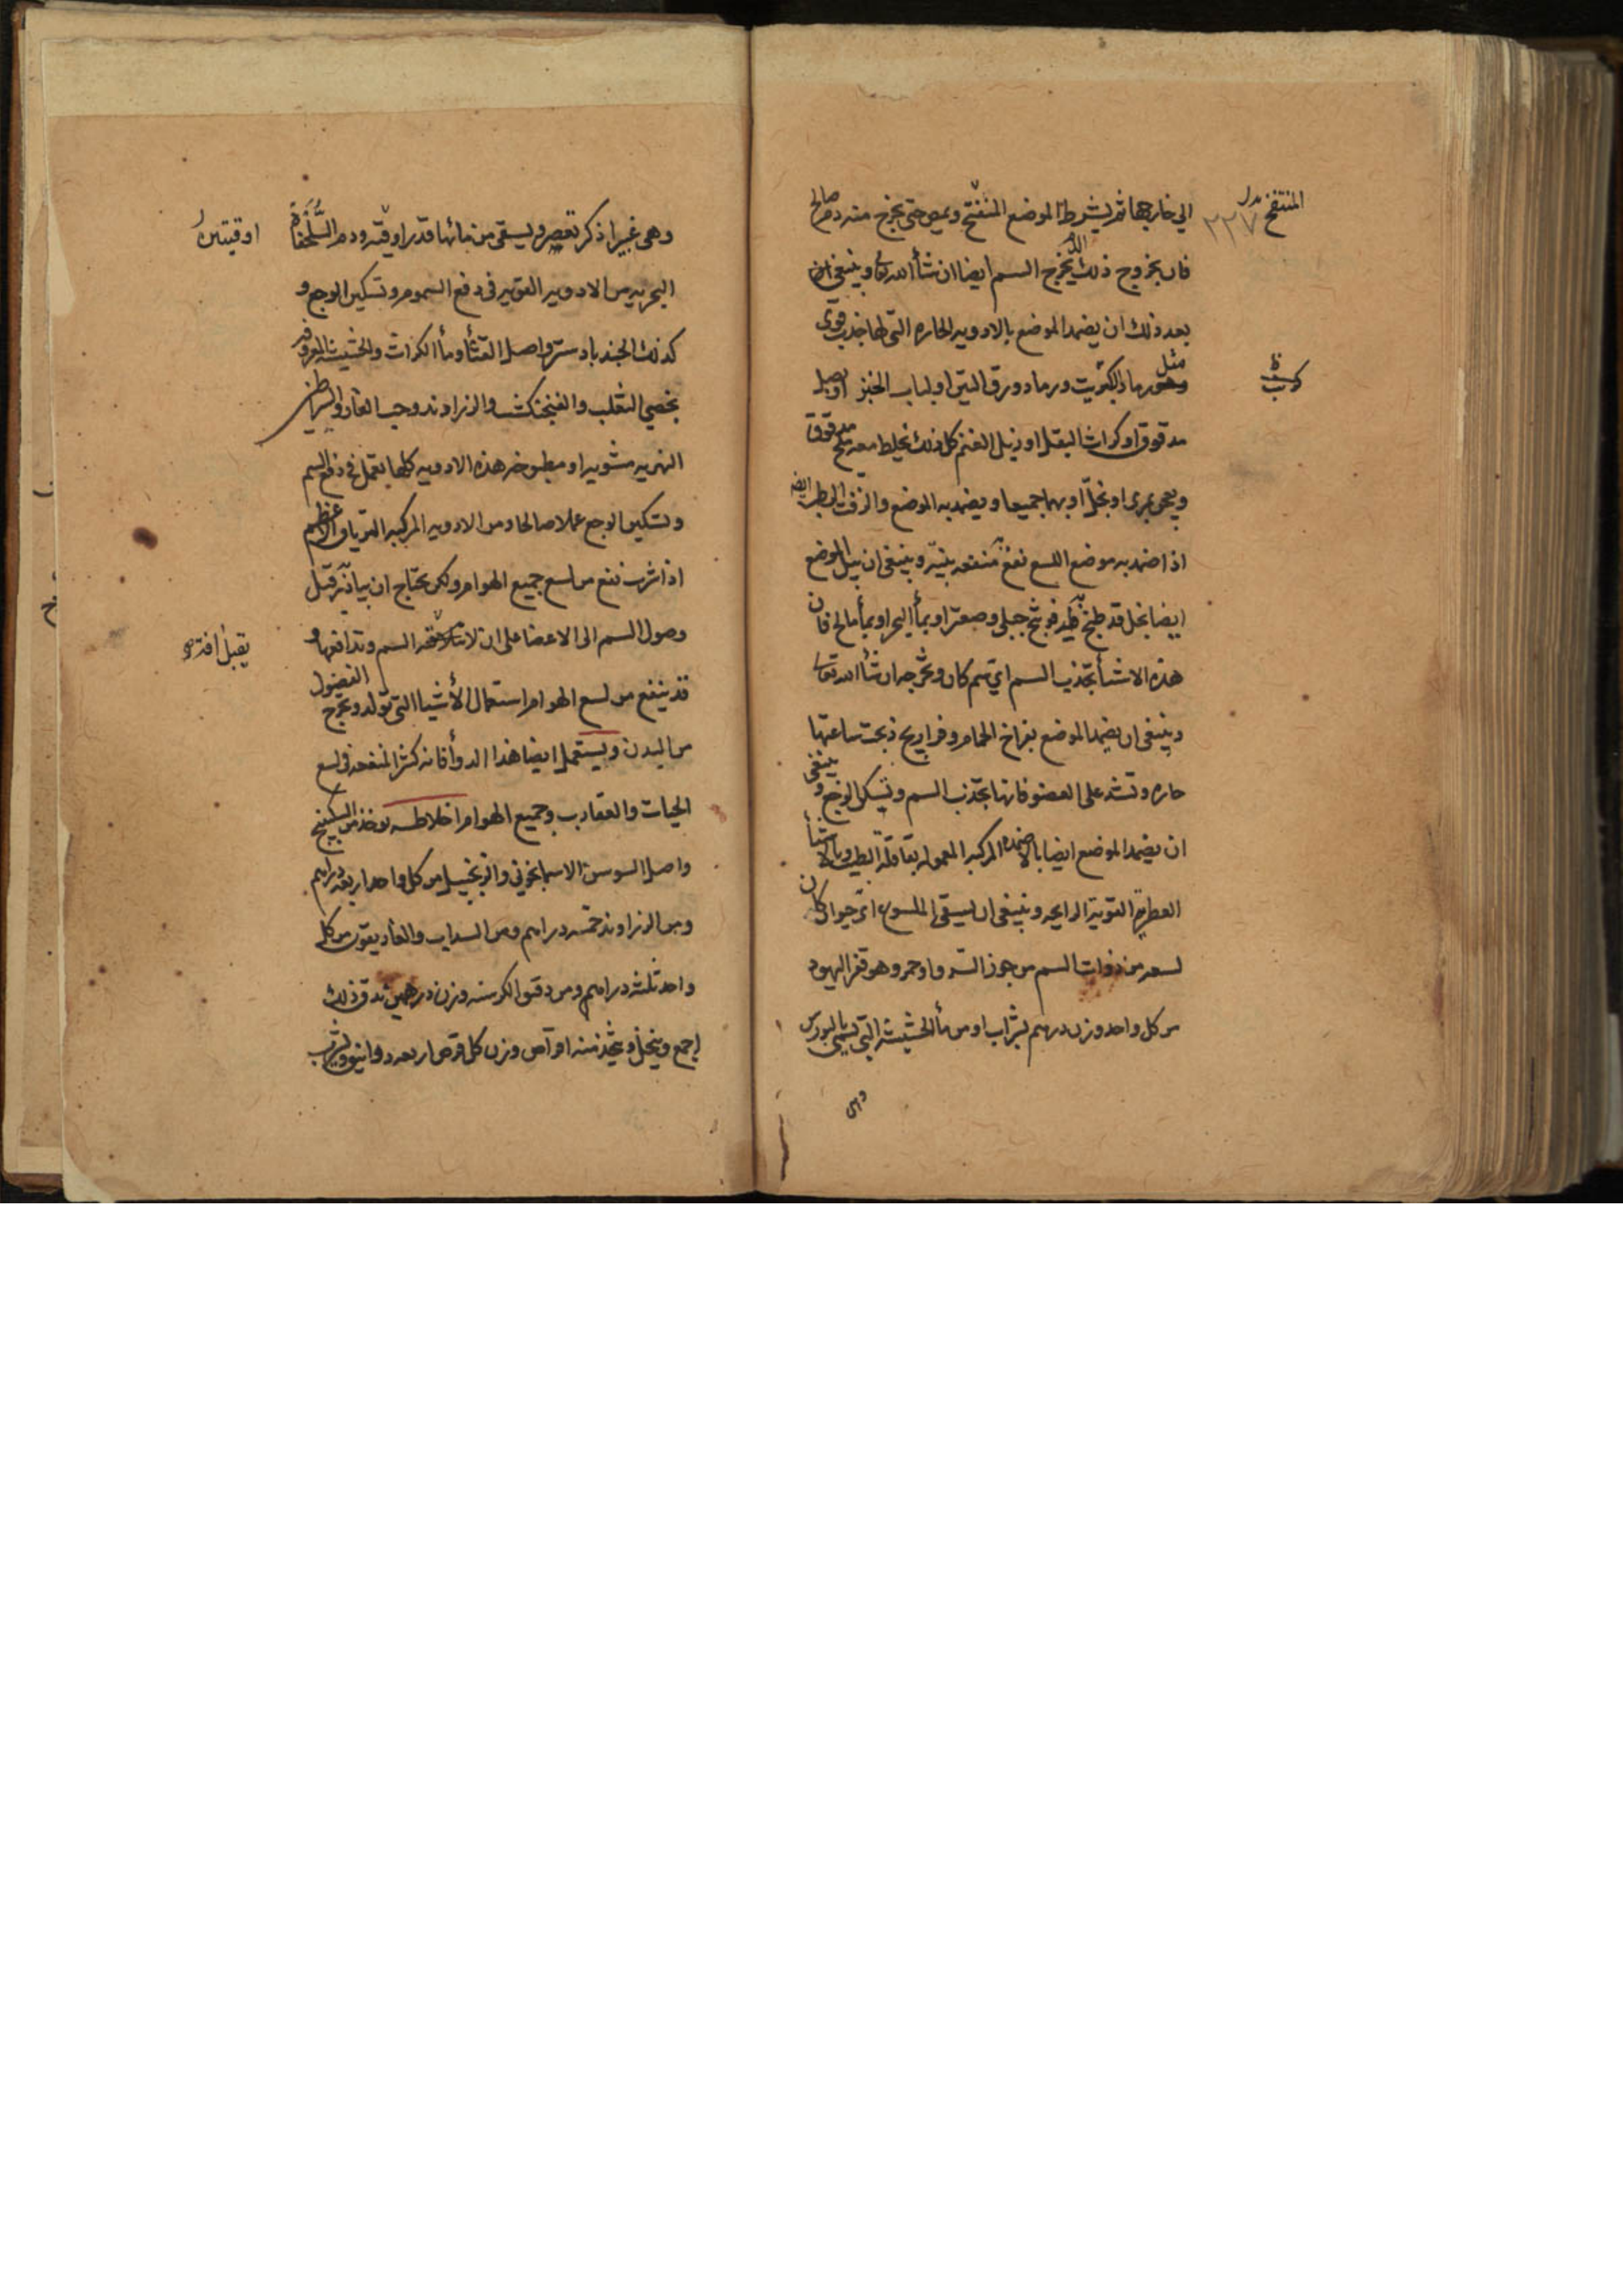 الي خارجها ثم يشرط الموضع المنفتح ويمص حتى يخرج منه دم صالح
المنتفخ بدل
٣٢٧
فان بخروج ذلك الدم يخرج السم ايضا ان شأ الله تعا وينبغي
بعد ذلك ان يضمد الموضع بالادويه الحاره التي لها جذب قوى
مثل رماد الكبريت ورماد ورق التين او لباب الخبز او بصل
مدقوق او كراث البقل او زبل الغنم كل ذلك يخلط معه ملح مدقوق
ويعجن بمرى او بخل او بهما جميعا ويضمد به الموضع والزفت الرطب ايضا
اذا ضمد به موضع اللسع نفع منفعه بينه وينبغي ان يبل الموضع
ايضا بخل قد طبخ فيه فوتنج جبلي وصعتر او بمأ البحر او بمأ مالح فان
هذه الاشيأ تجذب السم اي سم كان وتخرجه ان شأ الله تعا
وينبغي ان يضمد الموضع بفراخ الحمام وفراريج ذبحت ساعتها
حاره وتشد على العضو فانها تجذب السم وتسكن الوجع وينبغي
ان يضمد الموضع ايضا بالاضمده المركبه المعموله بقاقلة الطيب وبالاشيأ
العطره القوية الرايحه وينبغي ان يسقى الملسوع اي حيوان كان
لسعه من ذوات السم من جوز السرو او حمر وهو قفر اليهود
من كل واحد وزن درهم بشراب او من مأ الحشيشة التي تسمى بالبورس
وهي
وهي غير اذكر تعصر ويسقى من مائها قدر اوقيه ودم السلحفاة
اوقيتين
البحريه من الادويه القويه في دفع السموم وتسكين الوجع و
كذلك الجندبادستر واصل القثأ ومأ الكراث والحشيشه المعروفه
بخصي الثعلب والفنجنكشت والزراوند وحب الغار والسراطين
النهريه مشويه او مطبوخه هذه الادويه كلها تعمل في دفع السم
وتسكين الوجع عملا صالحا ومن الادويه المركبه الترياق الاعظم
اذا شرب نفع من لسع جميع الهوام ولكن يحتاج ان يبادر قبل
وصول السم الى الاعضا على ان لا السم وتدافعها و
قد ينفع من لسع الهوام استعمال الأشيا التي تولد وتخرج الفضول
من البدن ويستعمل ايضا هذا الدوأ فانه كثير المنفعه في لسع
الحيات والعقارب وجميع الهوام اخلاطه يوخذ من السكبينج
واصل السوسن الاسمانجوني والزنجبيل من كل واحد اربعه دراهم
ومن الزراوند خمسه دراهم ومن السداب والغاريقون من كل
واحد ثلثه دراهم ومن دقيق الكرسنه وزن درهمين يدق ذلك
اجمع وينخل ويتخذ منه اقراص وزن كل قرص اربعه دوانيق ويشرب